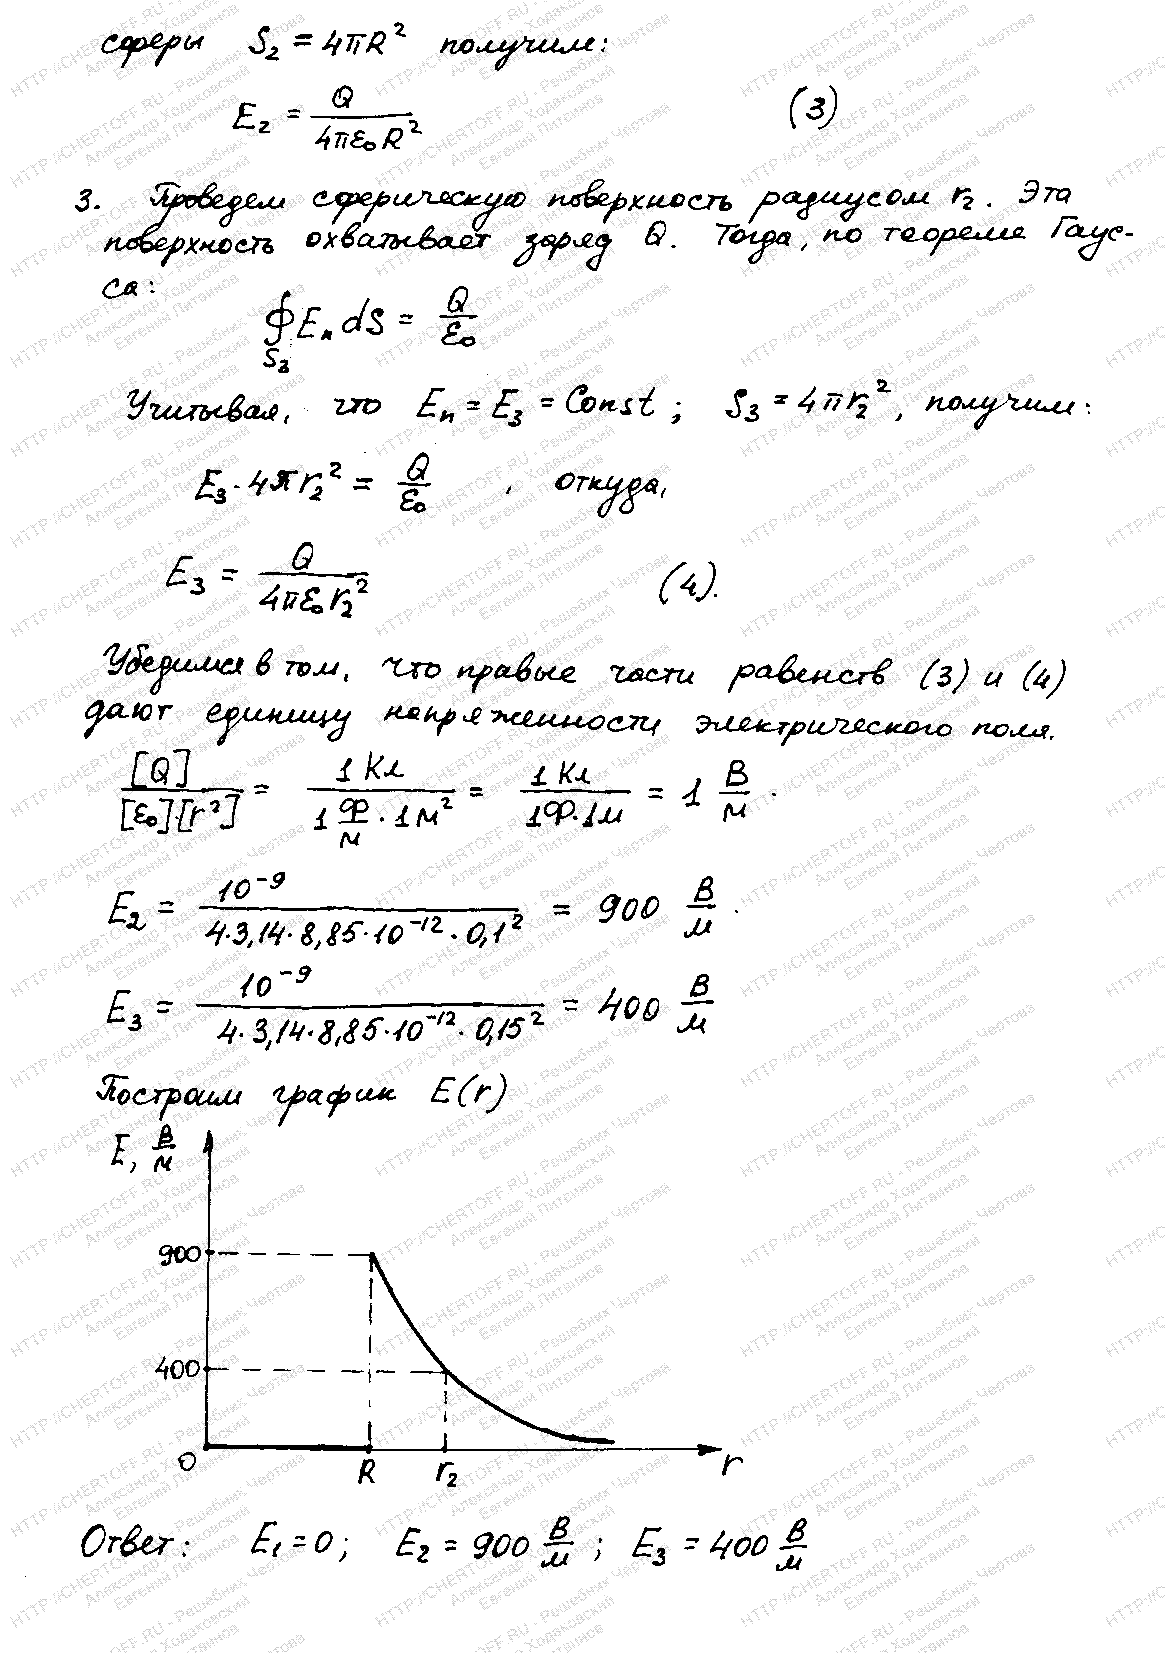 сферы S₂ = 4πR² получим:
E₂ = Q / (4πε₀R²) (3)
3. Проведем сферическую поверхность радиусом r₂. Эта
поверхность охватывает заряд Q. Тогда, по теореме Гаус-
са:
∮_{S₃} Eₙ dS = Q / ε₀
Учитывая, что Eₙ = E₃ = Const; S₃ = 4πr₂², получим:
E₃·4πr₂² = Q / ε₀, откуда,
E₃ = Q / (4πε₀r₂²) (4).
Убедимся в том, что правые части равенств (3) и (4)
дают единицу напряженности электрического поля.
[Q] / ([ε₀]·[r²]) = 1 Кл / (1 Ф/м · 1 м²) = 1 Кл / (1Ф·1м) = 1 В/м.
E₂ = 10⁻⁹ / (4·3,14·8,85·10⁻¹²·0,1²) = 900 В/м.
E₃ = 10⁻⁹ / (4·3,14·8,85·10⁻¹²·0,15²) = 400 В/м
Построим график E(r)
E, В/м
900
400
0 R r₂ r
Ответ: E₁ = 0; E₂ = 900 В/м; E₃ = 400 В/м
HTTP://CHERTOFF.RU - Решебник Чертова
Александр Ходаковский
Евгений Литвинов